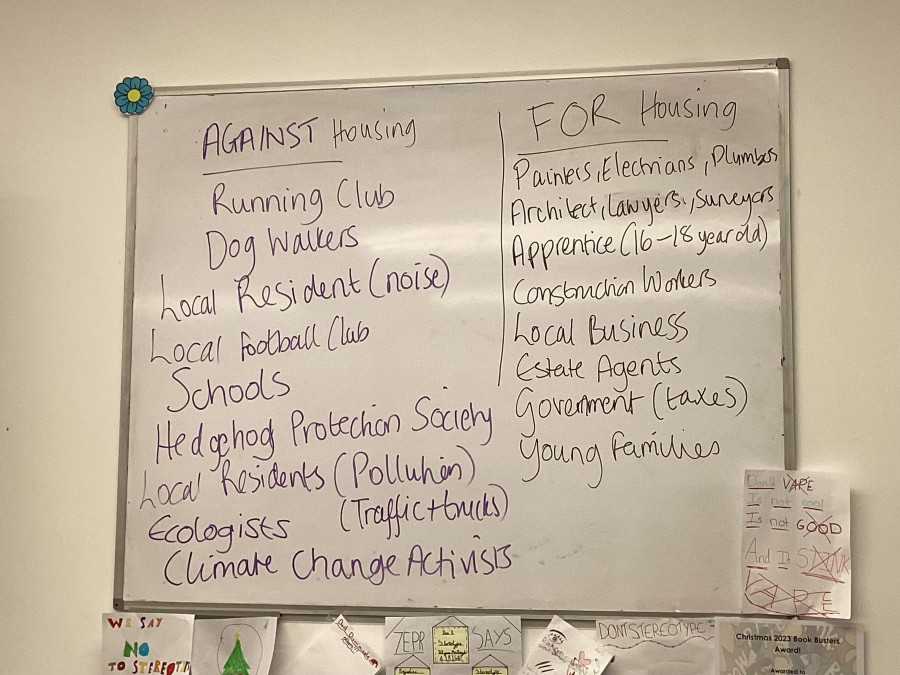 AGAINST Housing
Running Club
Dog Walkers
Local Resident (noise)
Local Football Club
Schools
Hedgehog Protection Society
Local Residents (Pollution)
(Traffic + trucks)
Ecologists
Climate Change Activists
FOR Housing
Painters, Electrians, Plumbers
Architect, Lawyers, Surveyors
Apprentice (16-18 year old)
Construction Workers
Local Business
Estate Agents
Government (taxes)
Young Families
Don't VAPE
Is not cool
Is not GOOD
And It STINK
VAPE
WE SAY
NO
TO STEREOTYP
ZEPP SAYS
DON'T STEREOTYPE
Christmas 2023 Book Busters
Award!
Awarded to